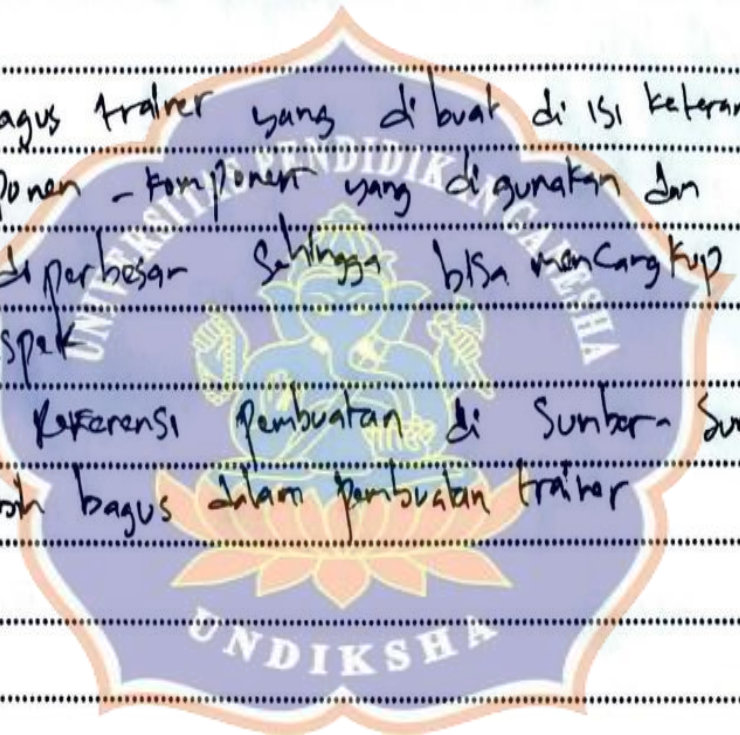 agus trainer yang di buat di isi keteran
ponen - komponen yang di gunakan dan
diperbesar sehingga bisa mencangkup
spek
Referensi pembuatan di Sumber- Su
bagus dalam pembuatan trainer
UNIVERSITAS PENDIDIKAN GANESHA
UNDIKSHA